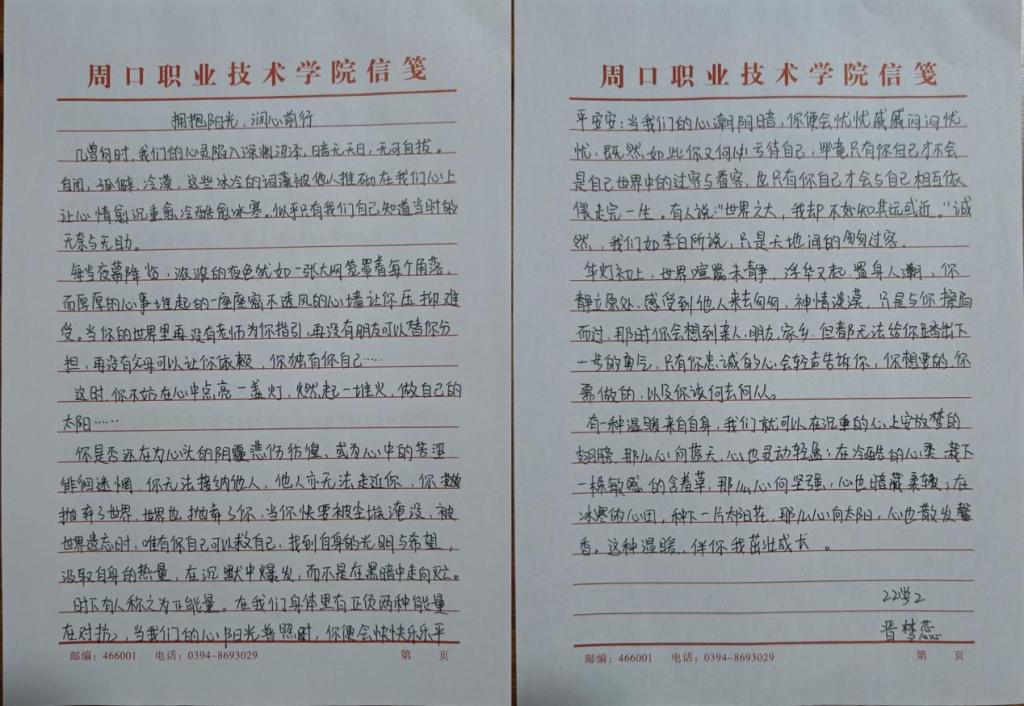 周口职业技术学院信笺
拥抱阳光,润心前行
几曾何时,我们的心灵陷入深渊沼泽,暗无天日,无可自拔。
自闭,孤僻,冷漠,这些冰冷的词藻被他人堆砌在我们心上
让心情愈沉重愈冷酷愈冰寒。似乎只有我们自己知道当时的
无奈与无助。
每当夜幕降临,浓浓的夜色犹如一张大网笼罩着每个角落,
而厚厚的心事堆起的一座座密不透风的心墙让你压抑难
受。当你的世界里再没有老师为你指引,再没有朋友可以替你分
担,再没有父母可以让你依赖,你独有你自己……
这时,你不妨在心中点亮一盏灯,燃起一堆火,做自己的
太阳……
你是否还在为心头的阴霾悲伤彷徨,或为心中的苦涩
徘徊迷惘,你无法接纳他人,他人亦无法走近你,你
抛弃了世界,世界也抛弃了你,当你快要被尘埃淹没,被
世界遗忘时,唯有你自己可以救自己,找到自身的光明与希望,
汲取自身的热量,在沉默中爆发,而不是在黑暗中走向灭。
时下有人称之为正能量。在我们身体里有正负两种能量
在对抗,当我们的心阳光普照时,你便会快快乐乐平
邮编:466001 电话:0394-8693029 第 页
周口职业技术学院信笺
平安安;当我们的心潮阴暗,你便会忧忧戚戚闷闷忧
忧,既然如此你又何必亏待自己,毕竟只有你自己才不会
是自己世界中的过客与看客,也只有你自己才会与自己相互依
偎走完一生。有人说:"世界之大,我却不如知其远或近。"诚
然,我们如李白所说,只是天地间的匆匆过客。
华灯初上,世界喧嚣未静,浮华又起,置身人潮,你
静立原处,感受到他人来去匆匆,神情淡漠,只是与你擦肩
而过,那时你会想到亲人,朋友,家乡,但都无法给你踏出下
一步的勇气,只有你忠诚的心会轻声告诉你,你想要的,你
需做的,以及你该何去何从。
有一种温暖来自自身,我们就可以在沉重的心上安放梦的
翅膀,那么心向蓝天,心也灵动轻盈;在冷酷的心里,栽下
一株敏感的含羞草,那么心向坚强,心也暗藏柔软;在
冰寒的心田,种下一片太阳花,那么心向太阳,心也散发馨
香。这种温暖,伴你我茁壮成长。
22学2
晋梦恋
邮编:466001 电话:0394-8693029 第 页